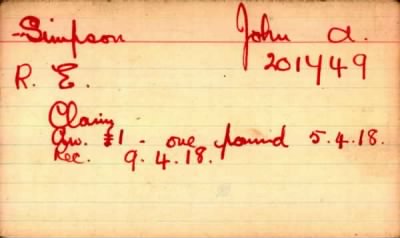 Simpson John A.
201449
R. E.
Claim
£1 - one pound 5.4.18.
Rec. 9.4.18.